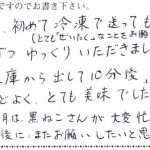 ですのでお書き下さい。
、初めて冷凍で送っても
(とてもぜいたくなことをお願
つゆっくりいただきまし
庫から出して10分後」
どよく、とても美味でした
月は、黒ねこさんが大変忙し
後に、またお願いしたいと思